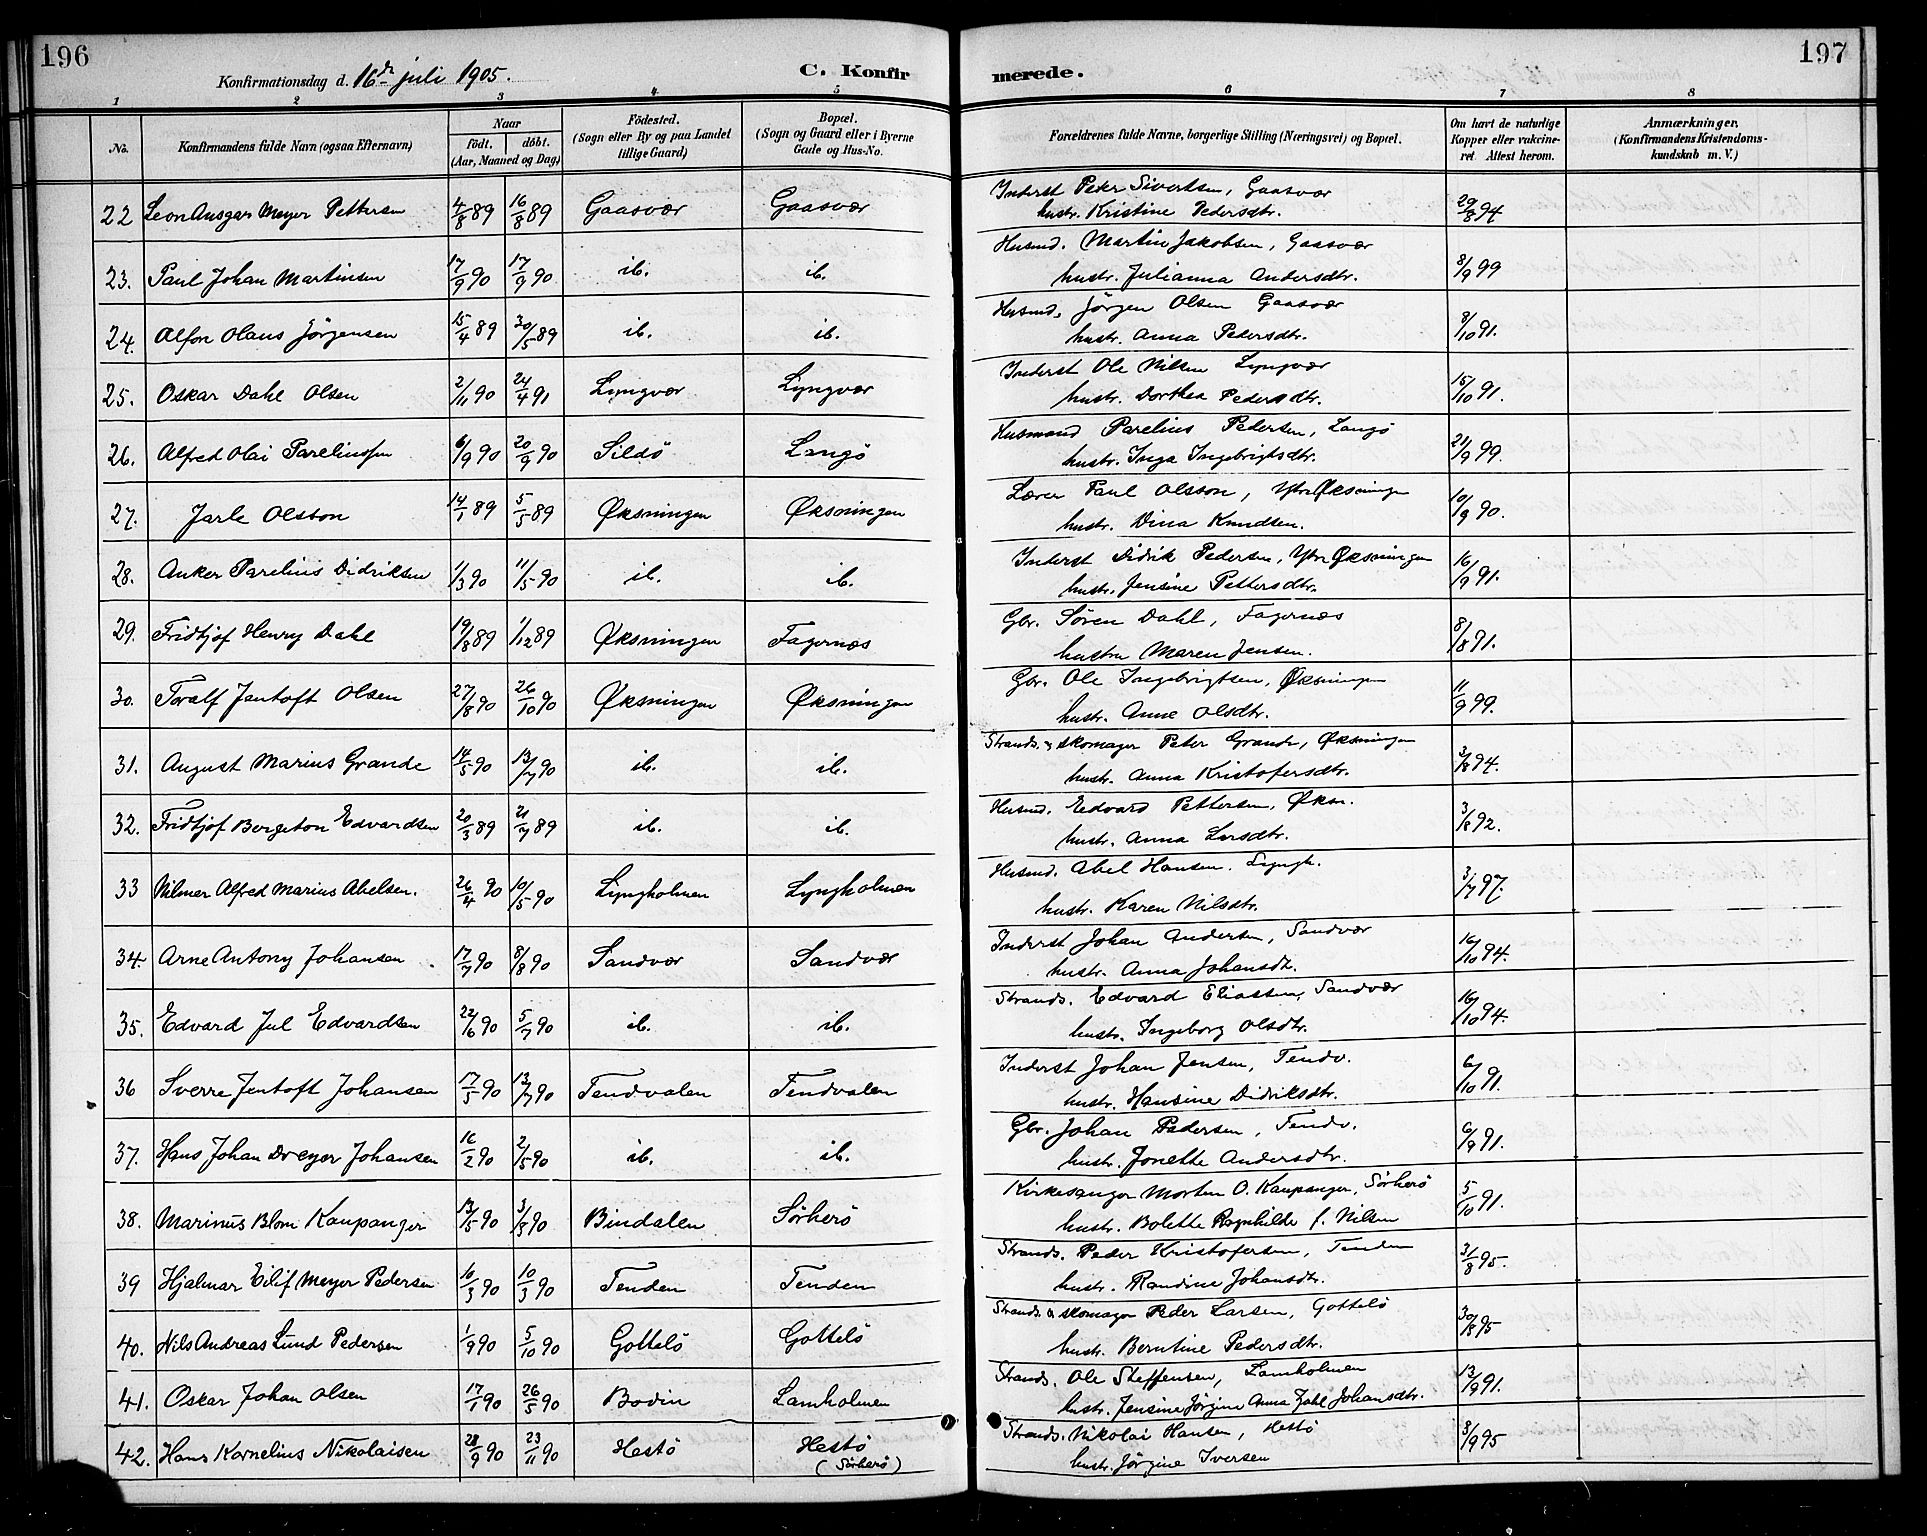 196
197
Konfirmationsdag d. 16de juli 1905.
C. Konfir
merede.
1 2 3 4 5 6 7 8
No.
Konfirmandens fulde Navn (ogsaa Efternavn)
Naar
født. døbt.
(Aar, Maaned og Dag)
Fødested.
(Sogn eller By og paa Landet
tillige Gaard)
Bopæl.
(Sogn og Gaard eller i Byerne
Gade og Hus-No.
Forældrenes fulde Navne, borgerlige Stilling (Næringsvei) og Bopæl.
Om havt de naturlige
Kopper eller vakcine-
ret Attest herom.
Anmærkninger.
(Konfirmandens Kristendoms-
kundskab m. V.)
22 Leon Ansgar Meyer Pettersen 4/8 89 16/8 89 Gaasvær Gaasvær Inderst Peter Sivertsen, Gaasvær 29/8 94
hustr. Kristine Pedersdtr.
23. Paul Johan Martinsen 17/9 90 17/9 90 ib. ib. Husmd. Martin Jakobsen, Gaasvær 8/9 99
hustr. Julianna Andersdtr.
24. Alfon Olaus Jörgensen 15/4 89 30/5 89 ib. ib. Husmd. Jörgen Olsen Gaasvær 8/10 91.
hustr. Anna Pedersdtr.
25. Oskar Dahl Olsen 2/11 90 24/4 91 Lyngvær Lyngvær Inderst Ole Nilsen Lyngvær 15/10 91.
hustr. Dorthea Pedersdtr.
26. Alfred Olai Pareliussen 6/9 90 20/9 90 Sildö Langö Husmand Parelius Pedersen, Langö 21/9 99.
hustr. Inga Ingebrigtsdtr.
27. Jarle Olsson 14/1 89 5/5 89 Øksningen Øksningen Lærer Paul Olsson, Ytre Øksningen 10/9 90.
hustr. Dina Knudsen.
28. Anker Parelius Didriksen 1/3 90 11/5 90 ib. ib. Inderst Didrik Pedersen, Ytre Øksningen 16/9 91.
hustr. Jensine Pettersdtr.
29. Fridtjof Henry Dahl 19/8 89 1/12 89 Øksningen Fagernæs Gbr. Sören Dahl, Fagernæs 8/8 91.
hustru Maren Jensen.
30. Toralf Jentoft Olsen 27/8 90 26/10 90 Øksningen Øksningen Gbr. Ole Ingebrigtsen, Øksningen 11/9 99.
hustr. Anne Olsdtr.
31. August Marius Grande 14/5 90 13/7 90 ib. ib. Strands. & skomager Peter Grande, Øksningen 3/8 94.
hustr. Anna Kristofersdtr.
32. Fridtjof Bergeton Edvardsen 20/3 89 21/7 89 ib. ib. Husmd. Eedvard Pettersen, Øksn. 3/8 92.
hustr. Anna Larsdtr.
33 Nilmer Alfred Marius Abelsen. 26/4 90 10/5 90 Lyngholmen Lyngholmen Husmd. Abel Hansen. Lyngh. 3/7 97.
hustr. Karen Nilsdtr.
34. Arne Antony Johansen 17/7 90 8/8 90 Sandvær Sandvær Inderst Johan Andersen, Sandvær 16/10 94.
hustr. Anna Johansdt.
35. Edvard Jul Edvardsen 22/6 90 5/7 90 ib. ib. Strands. Edvard Eliassen, Sandvær 16/10 94.
hustr. Ingeborg Olsdtr.
36 Sverre Jentoft Johansen 17/5 90 13/7 90 Tendvalen Tendvalen Inderst Johan Jensen, Tendv. 6/10 91.
hustr. Hansine Didriksdtr.
37. Hans Johan Dreyer Johansen 16/2 90 2/5 90 ib. ib. Gbr. Johan Pedersen, Tendv. 6/9 91.
hustr. Jonette Andersdtr.
38. Marinus Blom Kaupanger 13/5 90 3/8 90 Bindalen Sörherö Kirkesanger Morten O. Kaupanger, Sörherö 5/10 91.
hustr. Bolette Ragnhilde f. Nilsen
39 Hjalmar Eilif Meyer Pedersen 10/3 90 10/3 90 Tenden Tenden Strands. Peder Kristofersen, Tenden 31/8 95.
hustr. Randine Johansdtr.
40. Nils Andreas Lund Pedersen 1/9 90 5/10 90 Gottelö Gottelö Strands. & skomager Peder Larsen, Gottelö 30/8 95
hustr. Berntine Pedersdtr.
41. Oskar Johan Olsen 17/1 90 26/5 90 Bodin Lamholmen Strands. Ole Steffensen, Lamholmen 13/9 91.
hustr. Jensine Jörgine Anna Johansdtr.
42. Hans Kornelius Nikolaisen 28/9 90 23/11 90 Hestö Hestö Strands. Nikolai Hansen, Hestö 3/9 95
(Sörherö) hustr. Jörgine Iversen